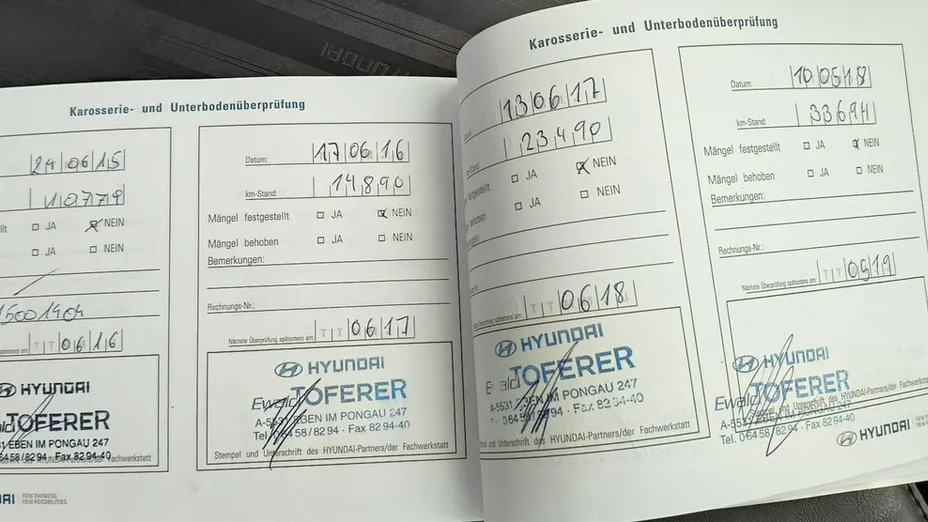 HYUNDAI
Karosserie- und Unterbodenüberprüfung
24 06 15
10779
JA NEIN
JA NEIN
06 16
HYUNDAI
TOFERER
EBEN IM PONGAU 247
6458/8294 · Fax 8294-40
Datum: 17 06 16
km-Stand: 14890
Mängel festgestellt JA NEIN
Mängel behoben JA NEIN
Bemerkungen:
Rechnungs-Nr.:
Nächste Überprüfung spätestens am TT 06 17
HYUNDAI
Ewald TOFERER
A-5531 EBEN IM PONGAU 247
Tel. 06458/8294 · Fax 8294-40
Stempel und Unterschrift des HYUNDAI-Partners/der Fachwerkstatt
NEW THINKING.
NEW POSSIBILITIES.
Karosserie- und Unterbodenüberprüfung
13 06 17
23490
JA NEIN
JA NEIN
TT 06 18
HYUNDAI
Ewald TOFERER
A-5531 EBEN IM PONGAU 247
Fax 8294-40
und Unterschrift des HYUNDAI-Partners/der Fachwerkstatt
Datum: 10 05 18
km-Stand: 33694
Mängel festgestellt JA NEIN
Mängel behoben JA NEIN
Bemerkungen:
Rechnungs-Nr.:
Nächste Überprüfung spätestens am TT 05 19
HYUNDAI
Ewald TOFERER
Stempel und Unterschrift des HYUNDAI-Partners/der Fachwerkstatt
Tel. 06458/8294 · Fax 8294-40
HYUNDAI